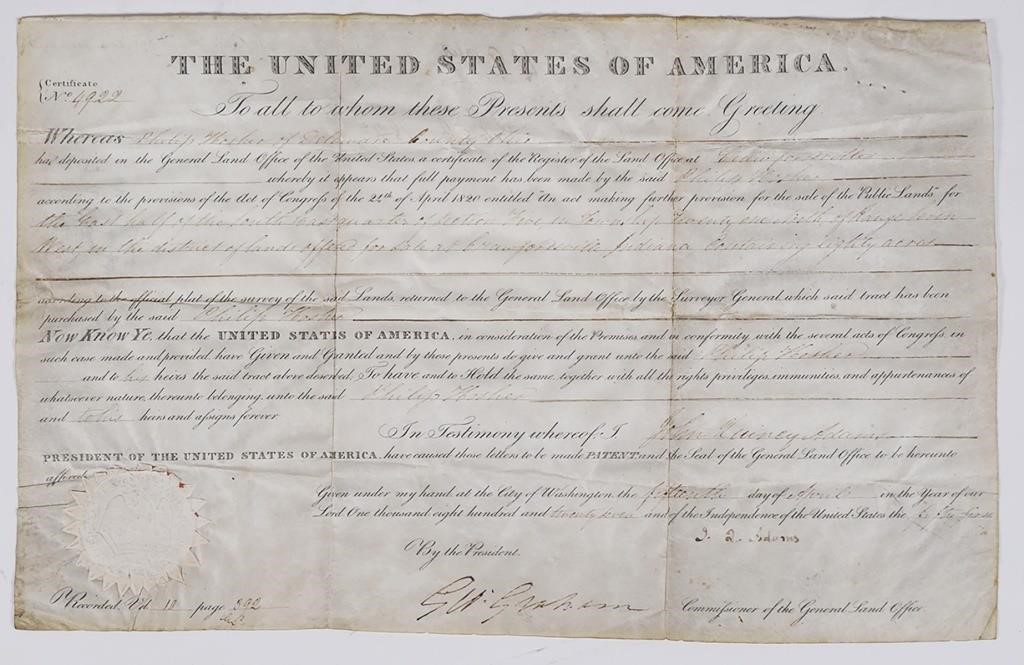 THE UNITED STATES OF AMERICA.
Certificate
No. 4922
To all to whom these Presents shall come Greeting
Whereas Philip Hosher of Delaware County Ohio
had deposited in the General Land Office of the United States, a certificate of the Register of the Land Office at
whereby it appears that full payment has been made by the said Philip Hosher
according to the provisions of the Act of Congress of the 24th of April 1820 entitled "An act making further provision for the sale of the Public Lands" for
the East half of the South East quarter of section Five, in Township Twenty one North of Range Seven
West in the district of lands offered for sale at Crawfordsville Indiana containing Eighty acres
according to the official plat of the survey of the said Lands, returned to the General Land Office by the Surveyor General, which said tract has been
purchased by the said Philip Hosher
Now Know Ye, that the UNITED STATES OF AMERICA, in consideration of the Premises, and in conformity with the several acts of Congress, in
such case made and provided, have Given and Granted and by these presents do give and grant unto the said Philip Hosher
and to his heirs the said tract above described; To have and to Hold the same, together with all the rights privileges, immunities, and appurtenances of
whatsoever nature, thereunto belonging, unto the said Philip Hosher
and to his heirs and assigns forever.
In Testimony whereof: I John Quincy Adams
PRESIDENT OF THE UNITED STATES OF AMERICA, have caused these letters to be made PATENT and the Seal of the General Land Office to be hereunto
affixed
Given under my hand at the City of Washington, the day of April in the Year of our
Lord One thousand eight hundred and twenty seven and of the Independence of the United States the fifty first
J. Q. Adams
By the President.
Geo: Graham Commissioner of the General Land Office
Recorded, Vol 10 page 392